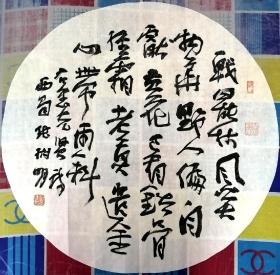 戰罷秋風笑
物華野人偏自
獻黃花已看鐵骨
經霜老莫遣金
心帶雨斜
西蜀張樹明